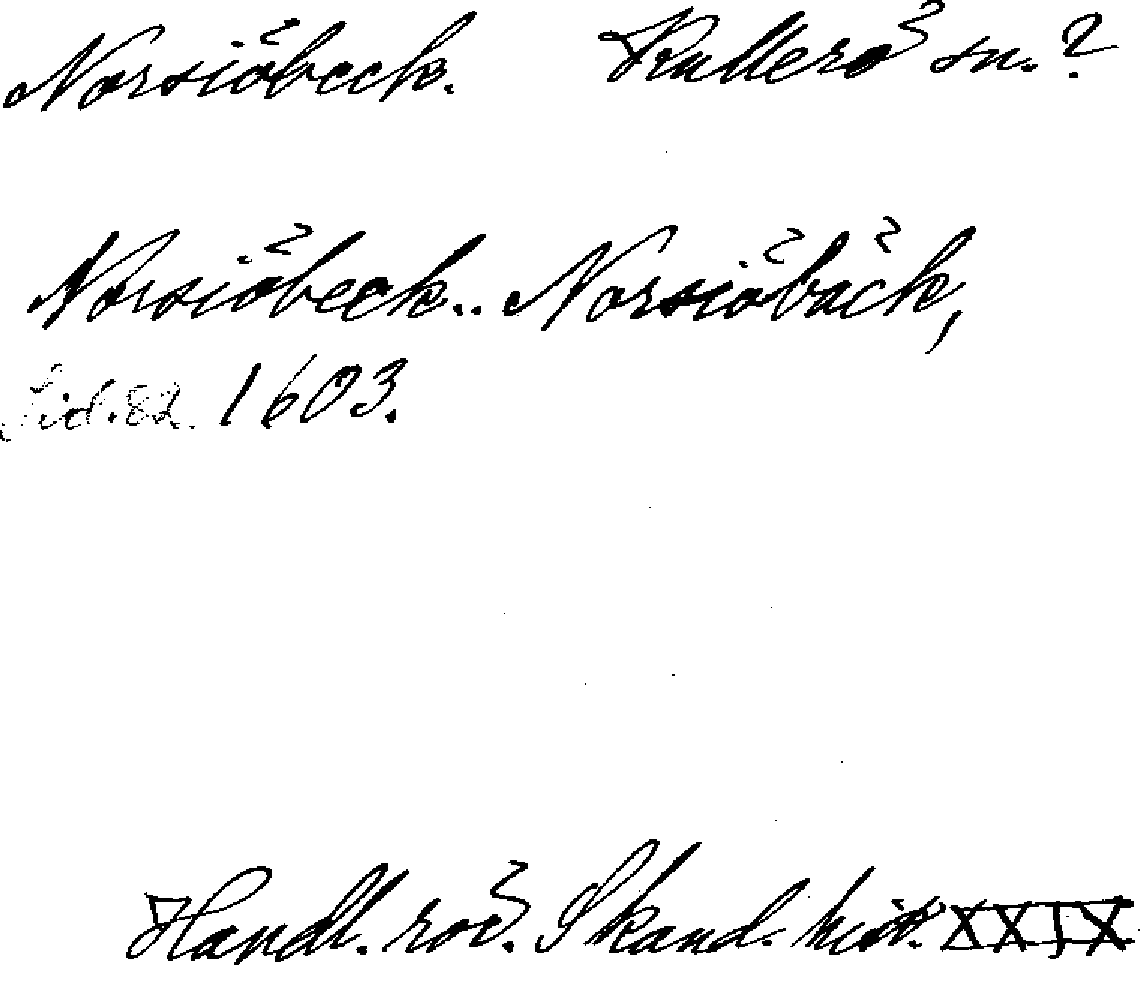 Norsiöbeck. Kullerö sn.?
Norsiöbeck.. Norsiöbäck,
Sid. 82. 1603.
Handl. rör. Skand. hist. XXIX